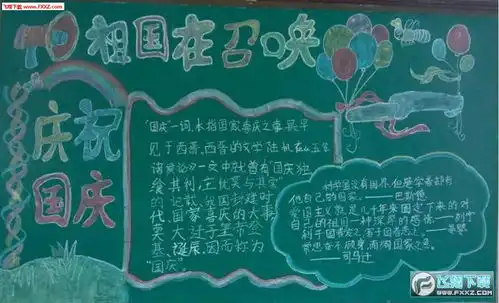 祖国在召唤
庆祝
国庆
"国庆"一词,本指国家喜庆之事,最早
见于西晋。西晋的文学陆机在《五等
诸侯论》一文中就曾有"国庆独
飨其利,主忧莫与其害"
的记载、我国封建时
代、国家喜庆的大事
莫大过于皇帝登
基、诞辰。因而称为
"国庆"。
科学虽没有国界,但是学者却有
他自己的国家。——巴斯德
爱国主义就是千百年来固定下来的对
自己的祖国一种深厚的感情——列宁
利于国者爱之,害于国者恶之。——晏婴
常思奋不顾身,而殉国家之急。
——司马迁
飞翔下载
www.FXXZ.com
飞翔下载
WWW.FXXZ.COM